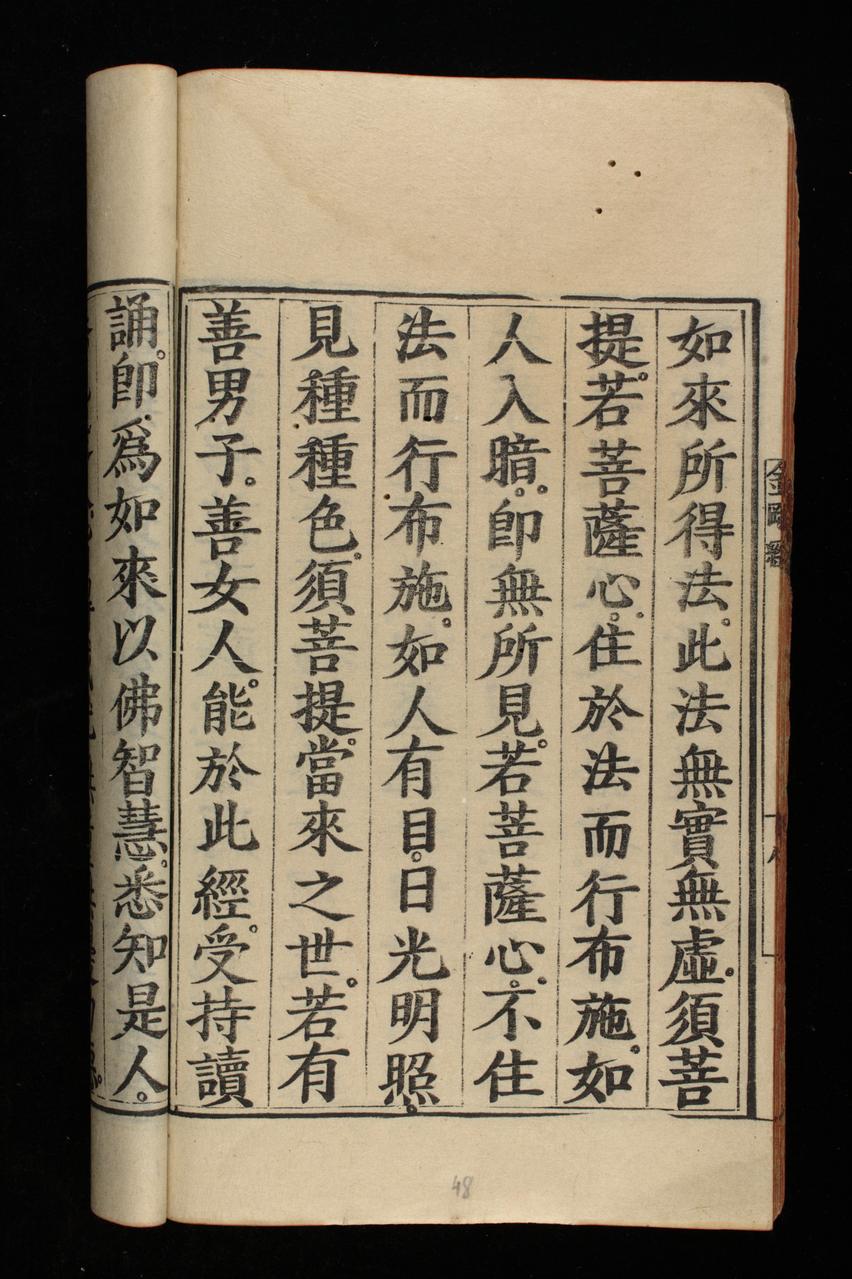 如來所得法。此法無實無虛。須菩
提。若菩薩心。住於法而行布施。如
人入暗。即無所見。若菩薩心。不住
法而行布施。如人有目。日光明照。
見種種色。須菩提。當來之世。若有
善男子。善女人。能於此經。受持讀
誦。即爲如來以佛智慧。悉知是人。
48